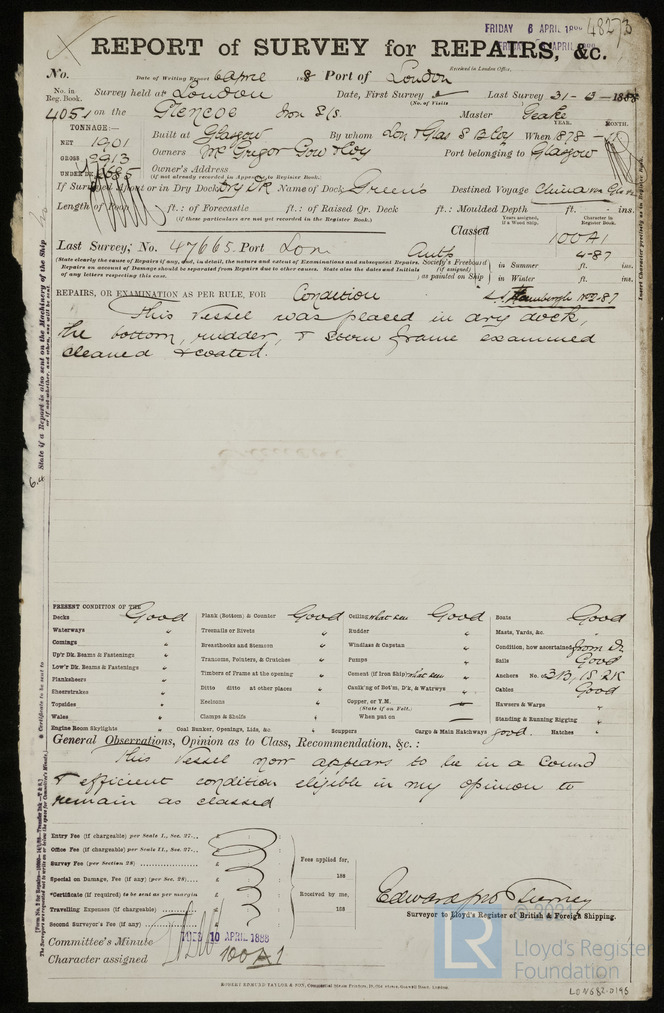 FRIDAY 6 APRIL 188
48273
REPORT of SURVEY for REPAIRS, &c.
Received in London Office,
No. Date of Writing Report 6 April 188 8 Port of London
No. in Reg. Book. Survey held at London Date, First Survey (No. of Visits Last Survey 31-3-1888
4051 on the Glencoe Iron S/S Master Geake
TONNAGE:— YEAR. MONTH.
NET 1901 Built at Glasgow By whom Lon & Glas S B Coy When 1878
GROSS 2913 Owners McGrigor Gow & Coy Port belonging to Glasgow
UNDER DK. 2685 Owner's Address
(if not already recorded in Appendix to Register Book.)
If Surveyed Afloat or in Dry Dock Dry Dk Name of Dock Green's Destined Voyage China
Length of Poop ft.: of Forecastle ft.: of Raised Qr. Deck ft.: Moulded Depth ft. ins.
(if these particulars are not yet recorded in the Register Book.)
Years assigned, if a Wood Ship. Character in Register Book.
Classed 100A1
Last Survey, No. 47665 Port Lon 4-87
(State clearly the cause of Repairs if any, and, in detail, the nature and extent of Examinations and subsequent Repairs.
Repairs on account of Damage should be separated from Repairs due to other causes. State also the dates and Initials
of any letters respecting this case.
Society's Freeboard (if assigned) as painted on Ship
in Summer ft. ins.
in Winter ft. ins.
REPAIRS, OR EXAMINATION AS PER RULE, FOR Condition
This Vessel was placed in dry dock,
the bottom, rudder, & stern frame examined
cleaned & coated.
PRESENT CONDITION OF THE
Decks Good Plank (Bottom) & Counter Good Ceiling what seen Good Boats Good
Waterways " Treenails or Rivets " Rudder " Masts, Yards, &c. "
Comings " Breasthooks and Stemson " Windlass & Capstan " Condition, how ascertained from Dk
Up'r Dk. Beams & Fastenings " Transoms, Pointers, & Crutches " Pumps " Sails Good
Low'r Dk. Beams & Fastenings " Timbers of Frame at the opening " Cement (if Iron Ship) what seen " Anchors No. of 3B, 1S 2K
Planksheers " Ditto ditto at other places " Caulk'g of Bot'm, D'k, & Watrwys " Cables Good
Sheerstrakes " Keelsons " Copper, or Y.M. (State if on Felt.) — Hawsers & Warps "
Topsides " Clamps & Shelfs " When put on — Standing & Running Rigging "
Wales "
Engine Room Skylights " Coal Bunker, Openings, Lids, &c. " Scuppers Cargo & Main Hatchways good. Hatches "
General Observations, Opinion as to Class, Recommendation, &c. :
This Vessel now appears to be in a Sound
& efficient condition eligible in my opinion to
remain as classed
Entry Fee (if chargeable) per Scale I., Sec. 27... £ : :
Office Fee (if chargeable) per Scale II., Sec. 27... £ : :
Survey Fee (per Section 28) £ : :
Special on Damage, Fee (if any) (per Sec. 28) £ : :
*Certificate (if required) to be sent as per margin £ : :
Travelling Expenses (if chargeable) £ : :
Second Surveyor's Fee (if any) £ : :
Fees applied for,
188
Received by me,
188
Edward Jno Tierney
Surveyor to Lloyd's Register of British & Foreign Shipping.
Committee's Minute TUES 10 APRIL 1888
Character assigned 100A1
LR
© 2021
Lloyd's Register
Foundation
LON682-0195
State if a Report is also sent on the Machinery of the Ship
* Certificate to be sent to
Insert Character precisely as in Register Book.